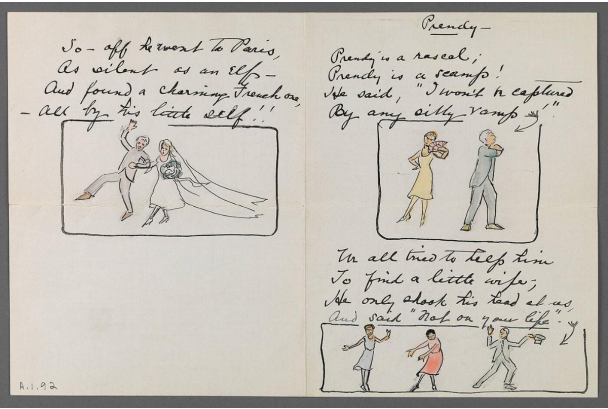 So - off he went to Paris,
As silent as an Elf -
And found a charming French one,
- All by his little self!!
A.1.92
Prendy -
Prendy is a rascal;
Prendy is a scamp!
He said, "I won't be captured
By any silly vamp!"
We all tried to help him
To find a little wife;
He only shook his head at us,
And said "Not on your life".